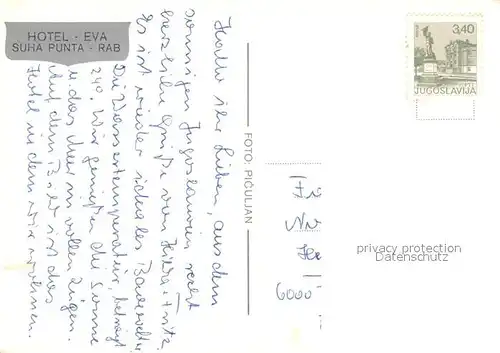 HOTEL - EVA
SUHA PUNTA - RAB
Hallo ihr Lieben, aus dem
sonnigen Jugoslawien recht
herzliche Grüße von Hilde + Fritz.
Es ist wieder schönes Badewetter.
Die Wassertemperatur beträgt
24°. Wir genießen die Sonne
u. das Meer in vollen Zügen.
Auf dem Bild ist das
Hotel in dem wir wohnen.
FOTO: PIČULJAN
3,40
JUGOSLAVIJA
6000
privacy protection
Datenschutz